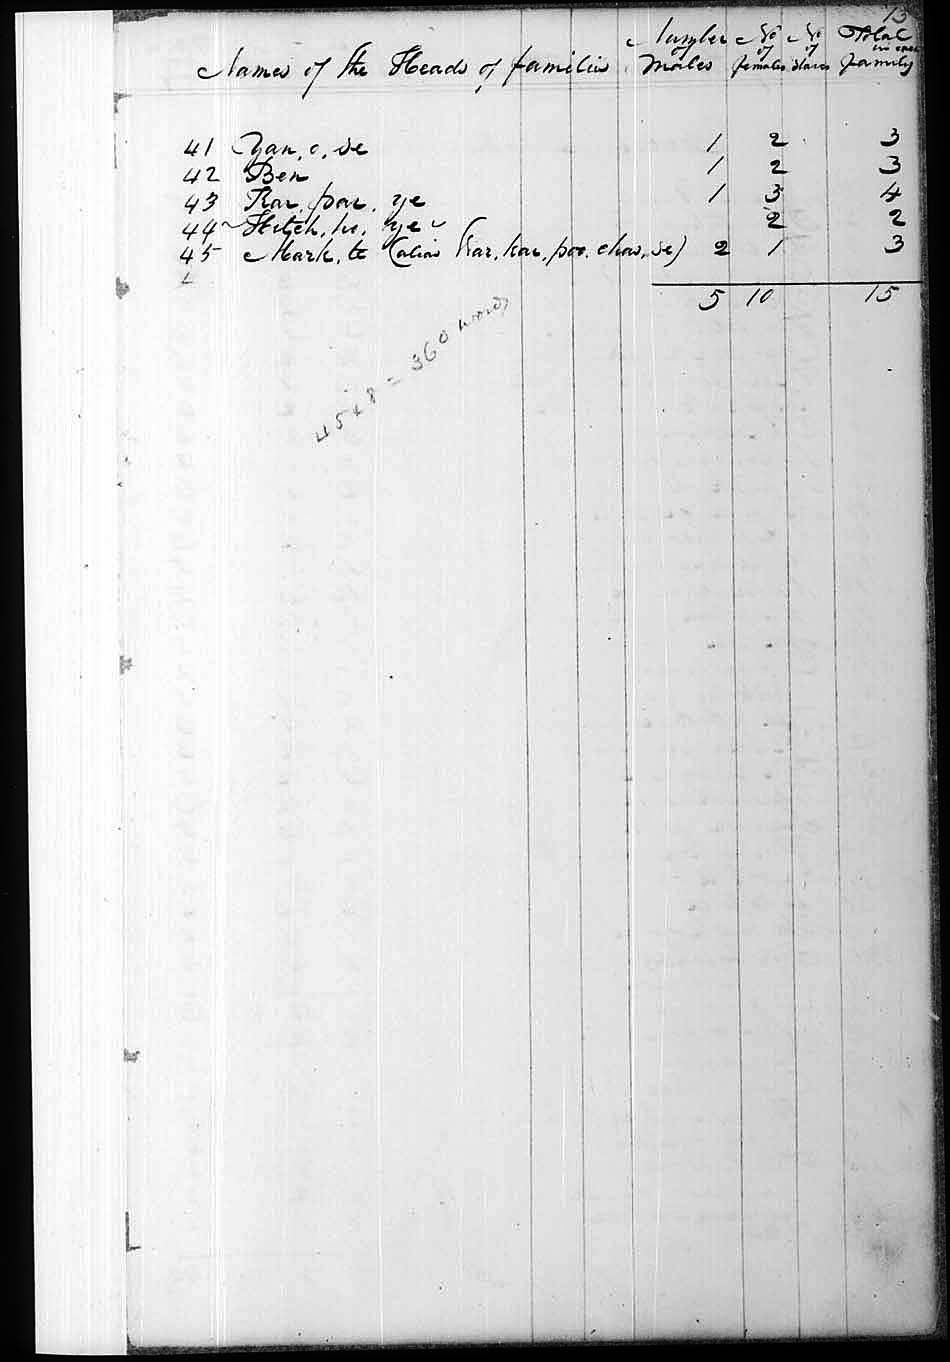 13
Names of the Heads of families Number of Males No of females No of Slaves Total in each family
41 Yan, o, se 1 2 3
42 Ben 1 2 3
43 Kar, par, ye 1 3 4
44 Hitch, he, ye 2 2
45 Mark, te (alias Kar, kar, poo, chow, se) 2 1 3
5 10 15
45 x 8 = 360 words